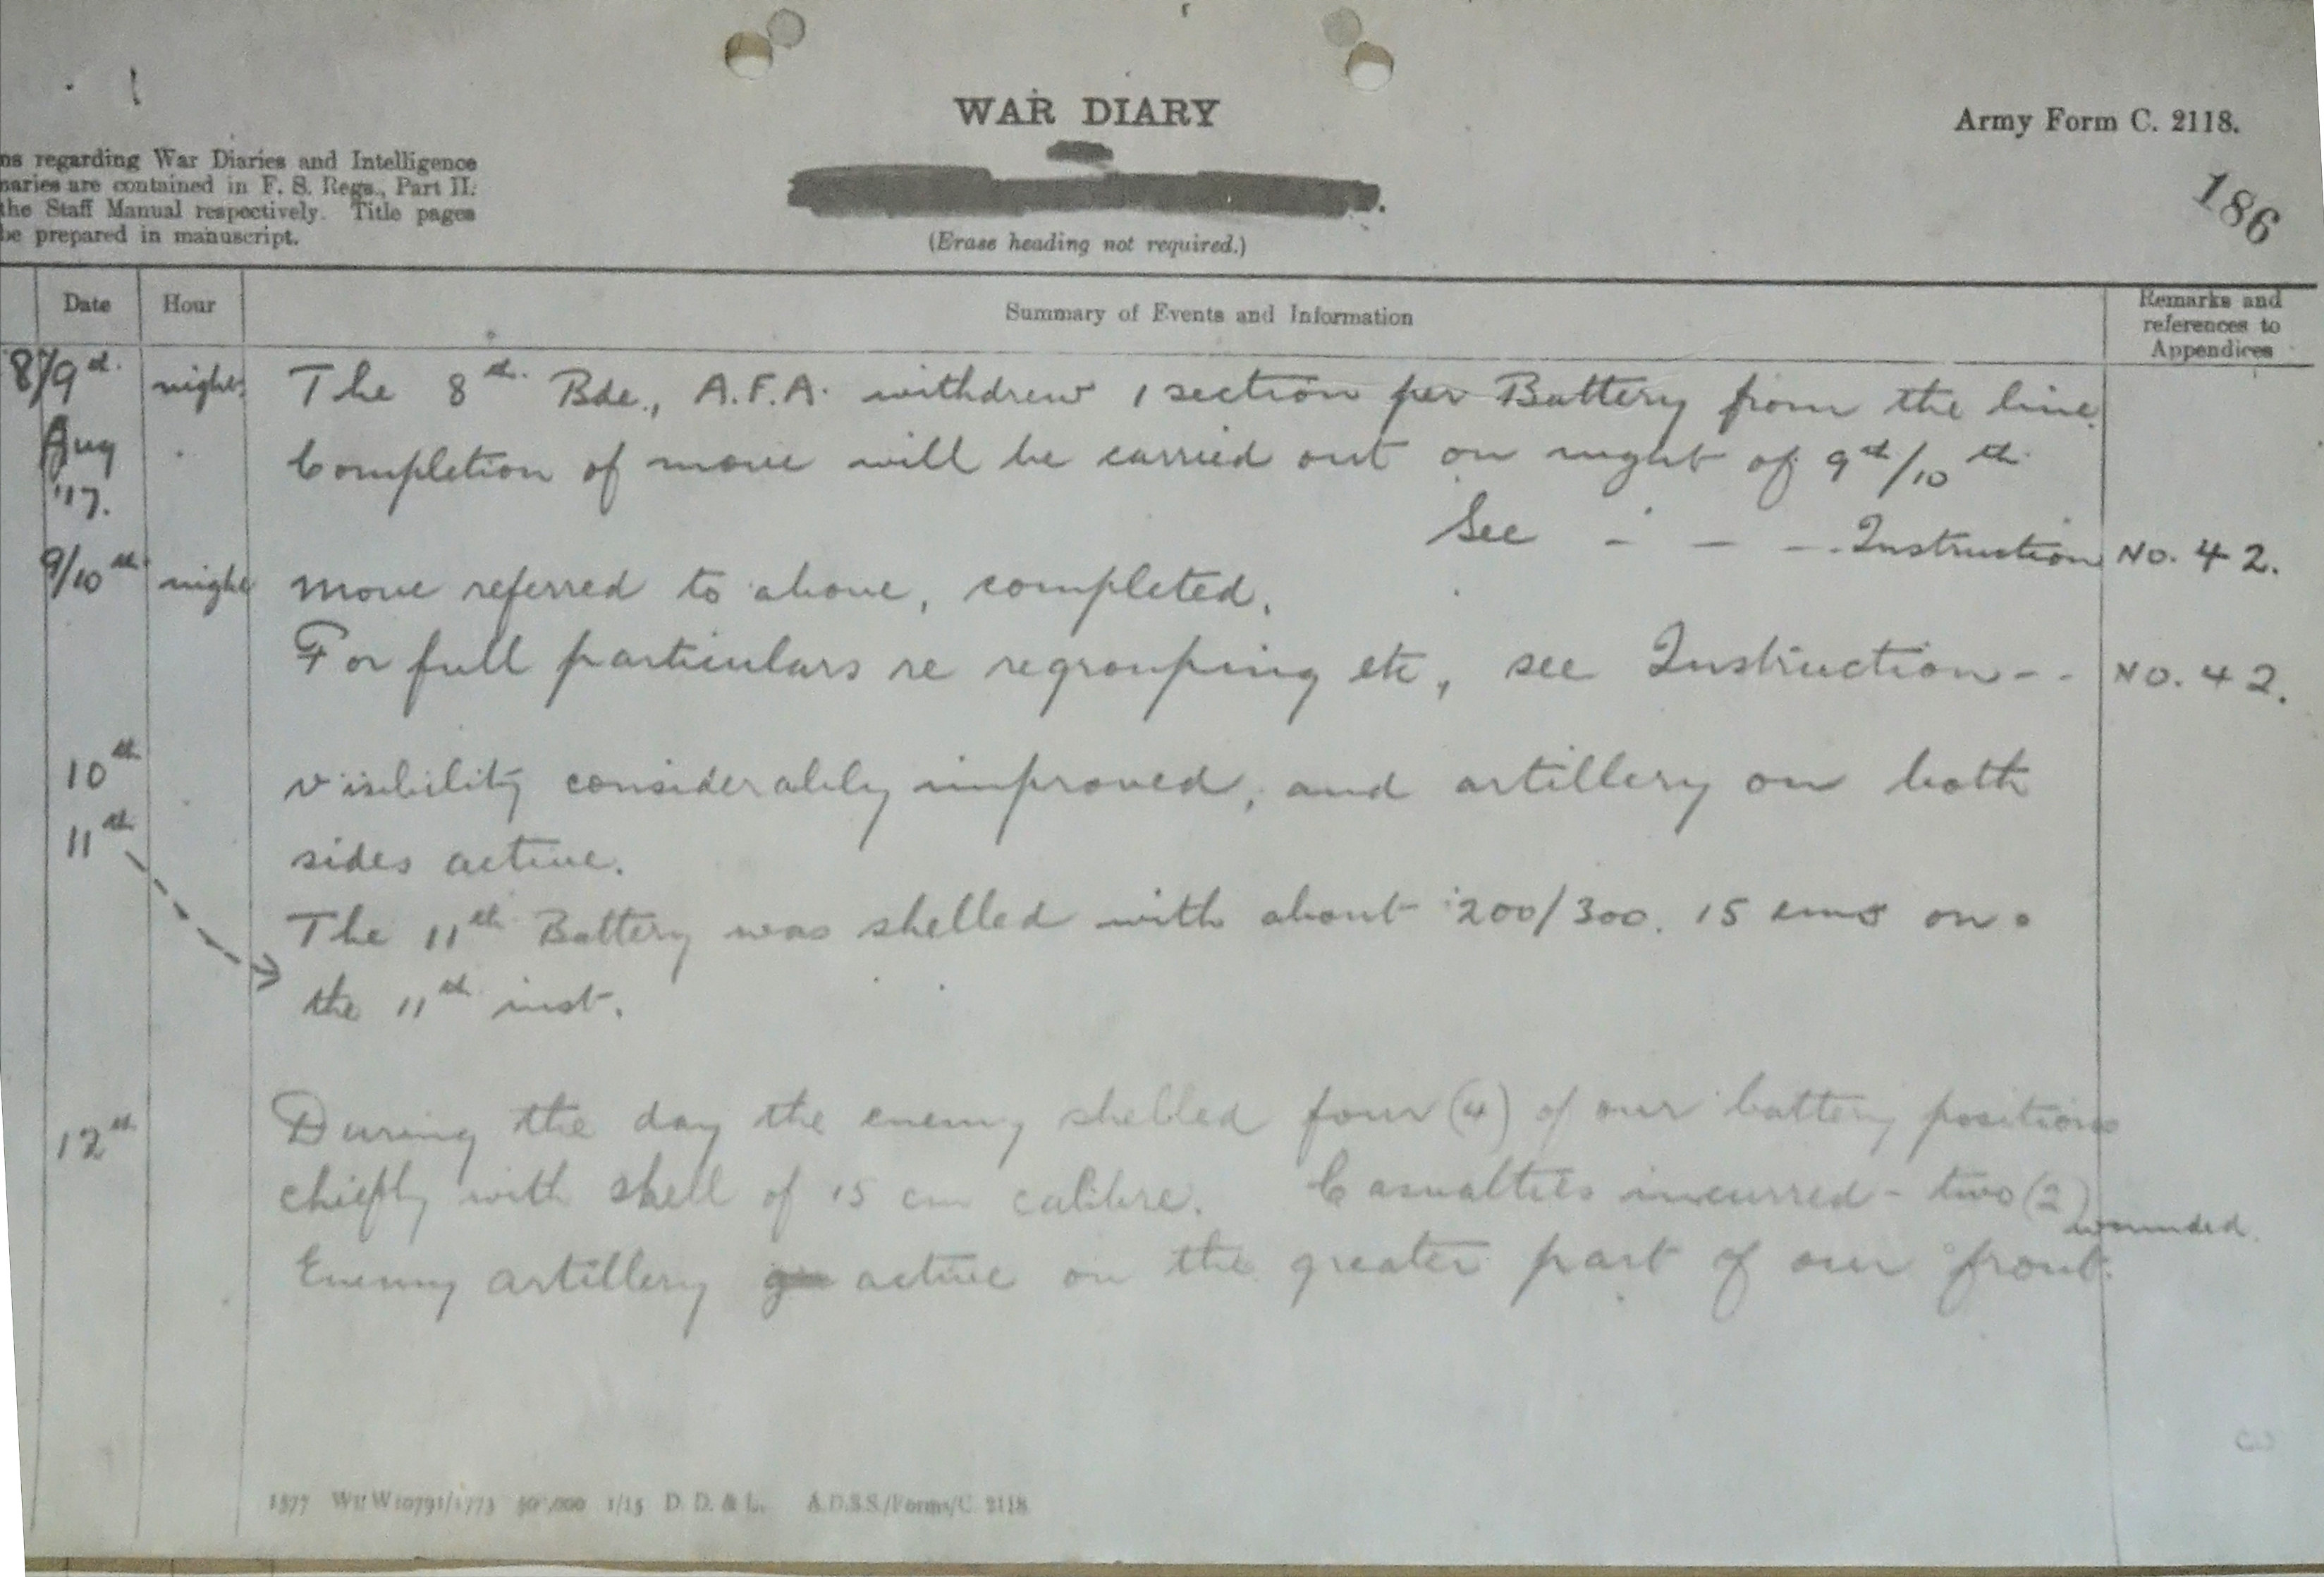 WAR DIARY
Army Form C. 2118.
186
ns regarding War Diaries and Intelligence
naries are contained in F. S. Regs., Part II.
the Staff Manual respectively. Title pages
be prepared in manuscript.
(Erase heading not required.)
Date Hour Summary of Events and Information Remarks and references to Appendices
8/9th night The 8th Bde., A.F.A. withdrew 1 section per Battery from the line.
Aug Completion of move will be carried out on night of 9th/10th
'17. See - - - Instruction No. 42.
9/10th night move referred to above, completed.
For full particulars re regrouping etc, see Instruction - - No. 42.
10th visibility considerably improved, and artillery on both
11th sides active.
The 11th Battery was shelled with about 200/300. 15 cms on
the 11th inst.
12th During the day the enemy shelled four (4) of our battery positions
chiefly with shell of 15 cm calibre. Casualties incurred - two (2) wounded.
Enemy artillery active on the greater part of our front.
1577 Wt. W10791/1773 50,000 1/15 D. D. & L. A.D.S.S./Forms/C. 2118